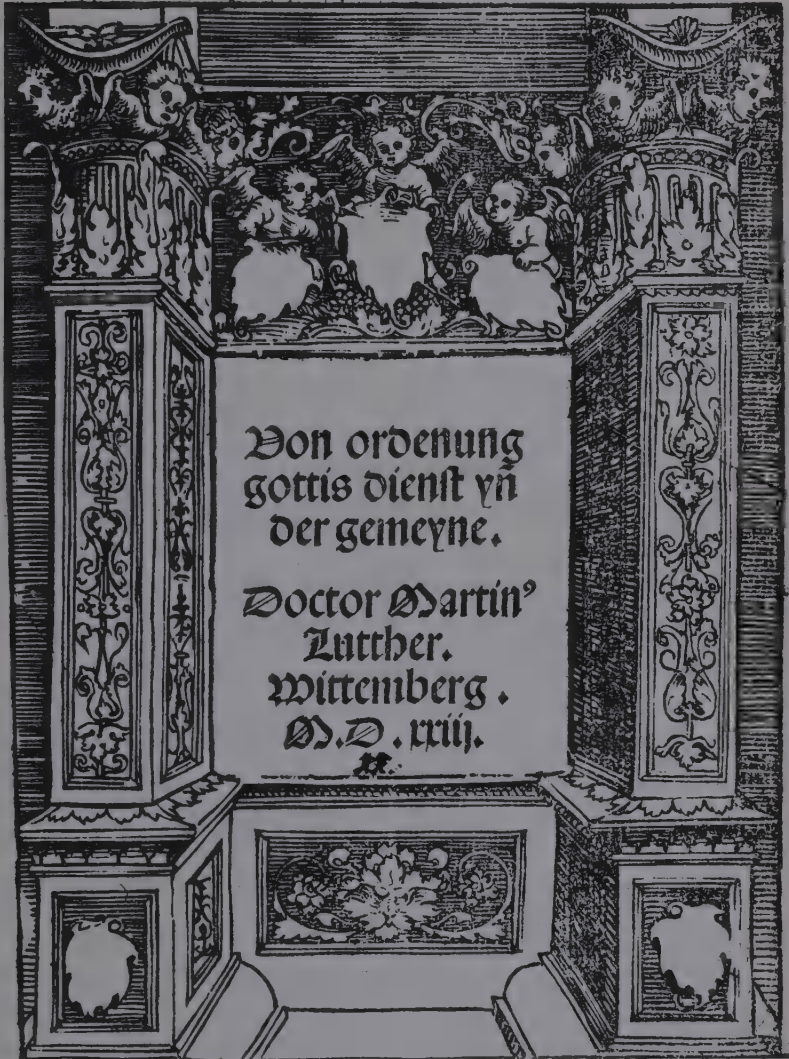 Von ordenung
gottis dienst yñ
der gemeyne.
Doctor Martin⁹
Lutther.
Wittemberg.
M.D.xxiij.